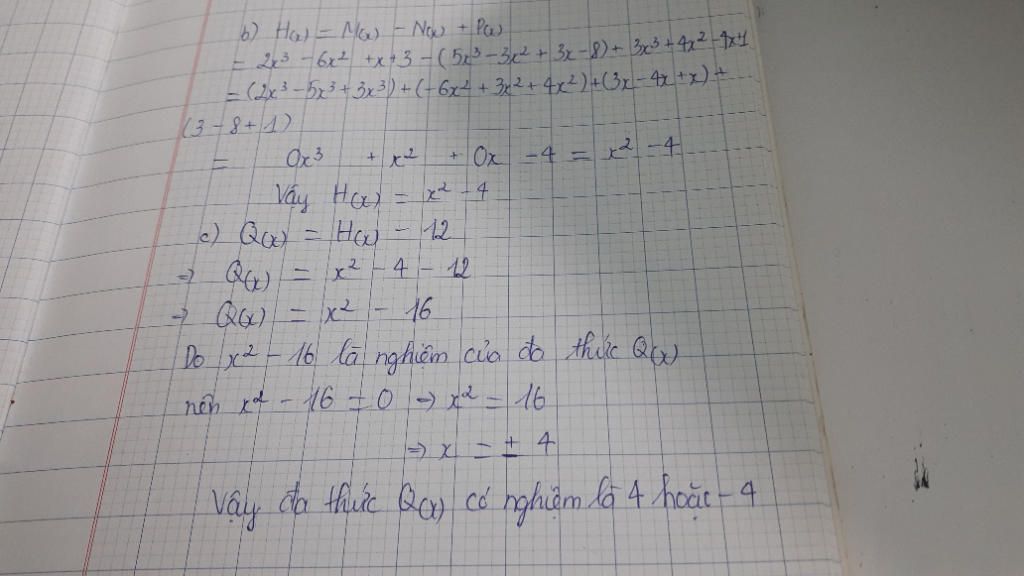 b) H(x) = M(x) - N(x) + P(x)
= 2x³ - 6x² + x + 3 - (5x³ - 3x² + 3x - 8) + 3x³ + 4x² - 4x + 1
= (2x³ - 5x³ + 3x³) + (-6x² + 3x² + 4x²) + (3x - 4x + x) +
(3 - 8 + 1)
= 0x³ + x² + 0x - 4 = x² - 4
Vậy H(x) = x² - 4
c) Q(x) = H(x) - 12
⇒ Q(x) = x² - 4 - 12
⇒ Q(x) = x² - 16
Do x² - 16 là nghiệm của đa thức Q(x)
nên x² - 16 = 0 ⇒ x² = 16
⇒ x = ± 4
Vậy đa thức Q(x) có nghiệm là 4 hoặc -4